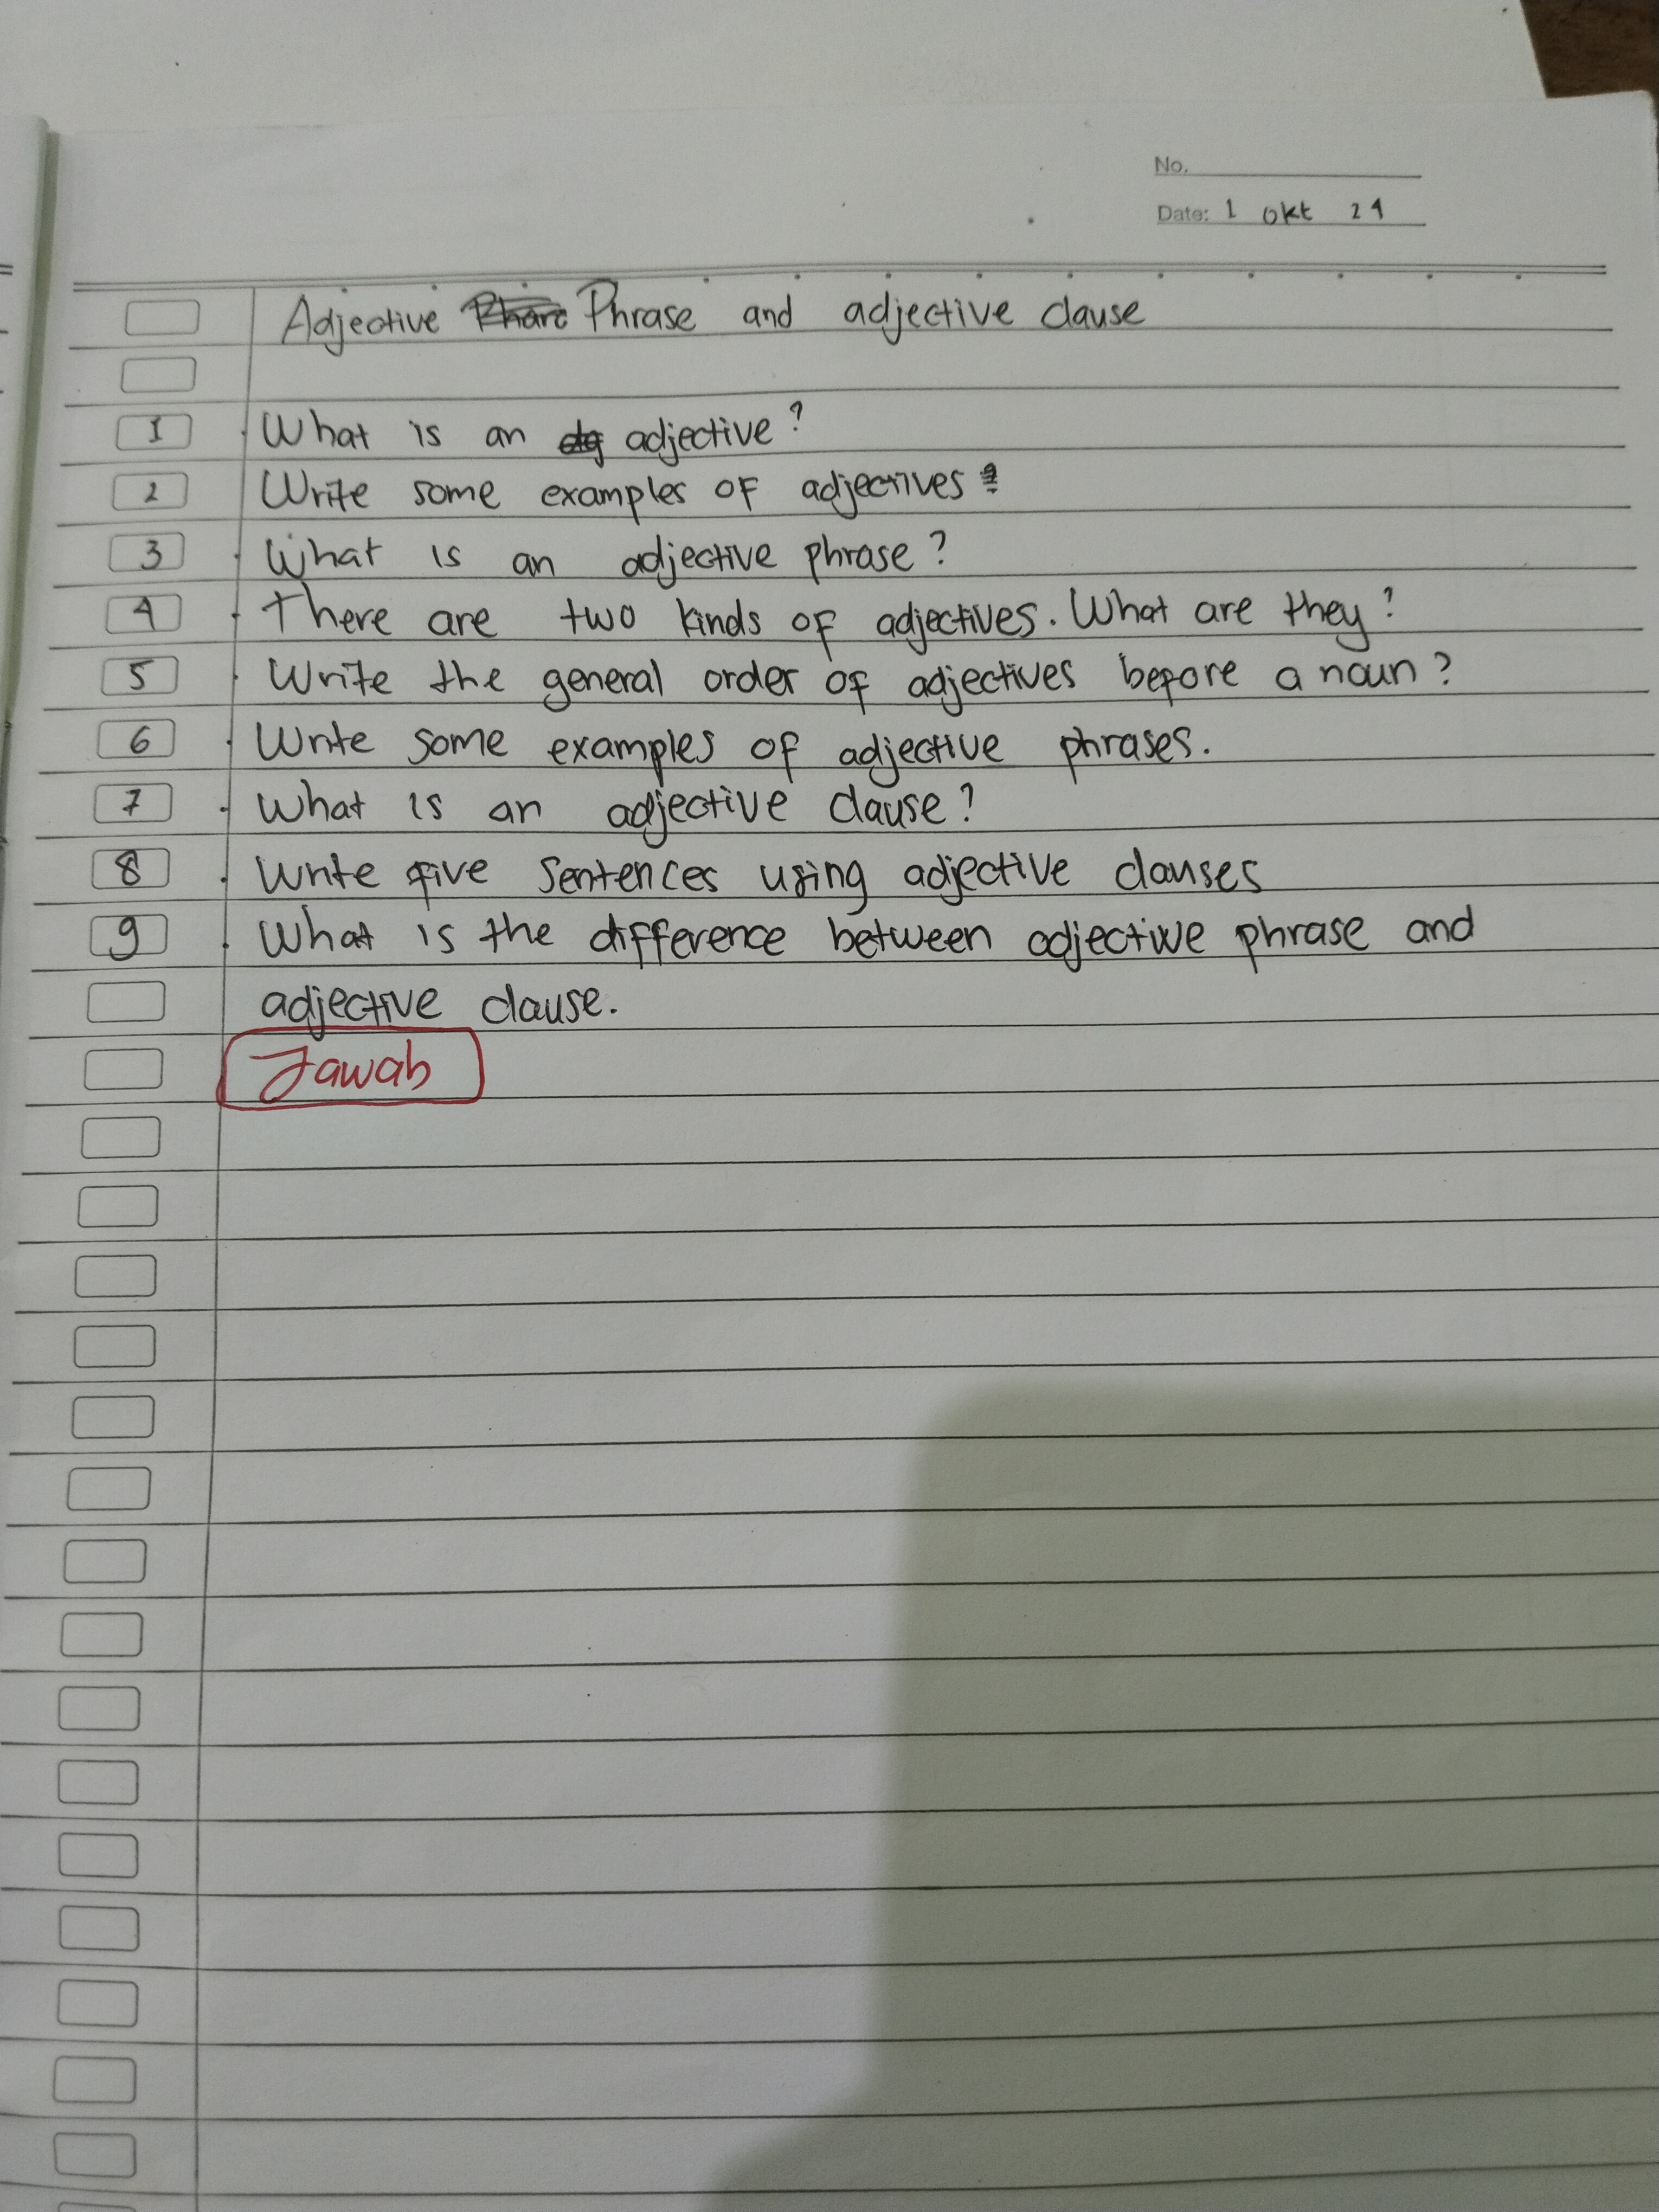 No.
Date: 1 Okt 24
Adjective Phrase and adjective clause
1 What is an adjective?
2 Write some examples of adjectives
3 What is an adjective phrase?
4 There are two kinds of adjectives. What are they?
5 Write the general order of adjectives before a noun?
6 Write some examples of adjective phrases.
7 What is an adjective clause?
8 Write five sentences using adjective clauses
9 What is the difference between adjective phrase and
adjective clause.
Jawab